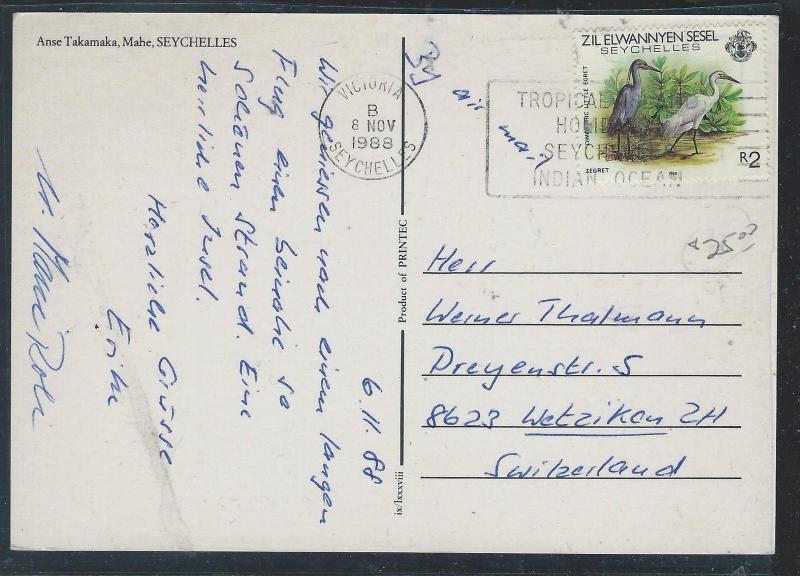 Anse Takamaka, Mahe, SEYCHELLES
6.11.88
Wir geniessen nach einem langen
Flug einen beinahe so
schönen Strand. Eine
herrliche Insel.
Herzliche Grüsse
Product of PRINTEC
ix/lxxxviii
VICTORIA
B
8 NOV
1988
SEYCHELLES
TROPICAL ISLAND
HOLIDAYS
SEYCHELLES
INDIAN OCEAN
air mail
ZIL ELWANNYEN SESEL
SEYCHELLES
LITTLE EGRET
ZEGRET
R2
25.00
Herr
Werner Thalmann
Dreyenstr. 5
8623 Wetzikon ZH
Switzerland